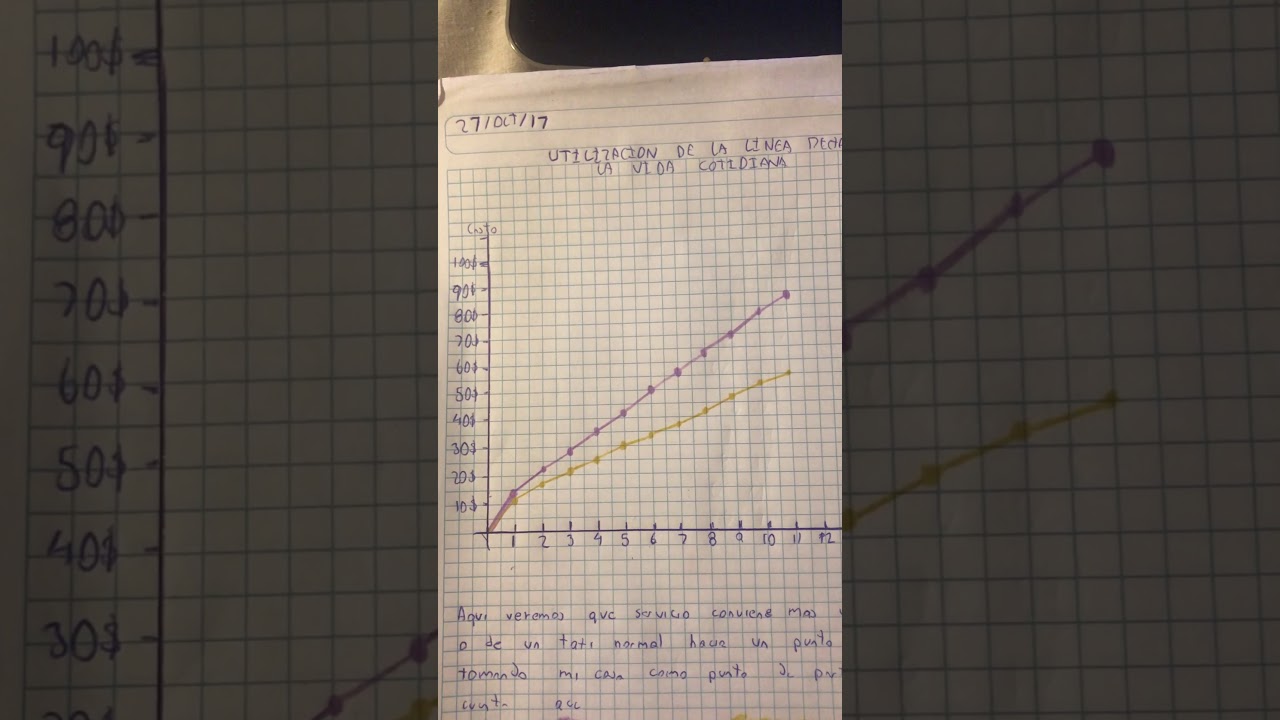 27/OCT/17
UTILIZACION DE LA LINEA RECTA
LA VIDA COTIDIANA
Costo
100$
90$
80$
70$
60$
50$
40$
30$
20$
10$
1 2 3 4 5 6 7 8 9 10 11 12
Aqui veremos que servicio conviene mas
o de un taxi normal hacia un punto
tomando mi casa como punto de
100$
90$
80$
70$
60$
50$
40$
30$